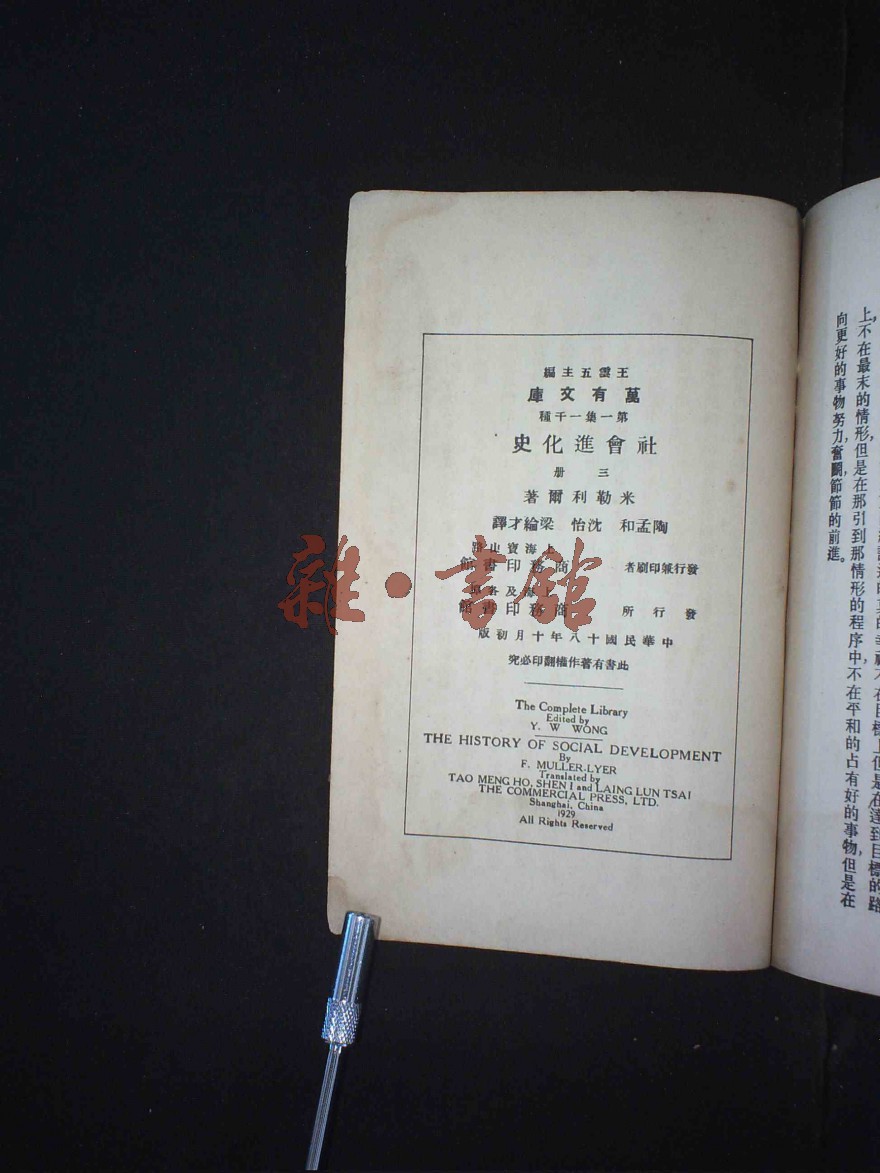 王雲五主編
萬有文庫
第一集一千種
社會進化史
三册
米勒利爾著
陶孟和 沈怡 梁綸才譯
上海寶山路
發行兼印刷者 商務印書館
上海及各埠
發行所 商務印書館
中華民國十八年十月初版
此書有著作權翻印必究
The Complete Library
Edited by
Y. W WONG
THE HISTORY OF SOCIAL DEVELOPMENT
By
F. MULLER-LYER
Translated by
TAO MENG HO, SHEN I and LAING LUN TSAI
THE COMMERCIAL PRESS, LTD.
Shanghai, China
1929
All Rights Reserved
不在目標上但是在達到目標的路
上,不在最末的情形,但是在那引到那情形的程序中,不在平和的占有好的事物,但是在
向更好的事物努力,奮鬭,節節的前進。
雜·書館